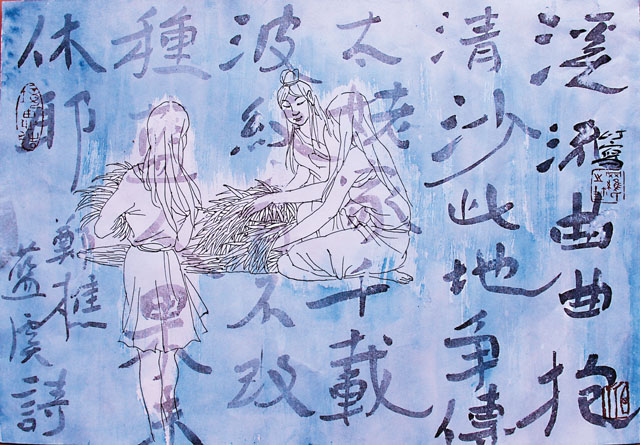 溪流曲曲抱
清沙此地爭傳
太姥家千載
波紋不改
種藍果未
休耶
鄭樵
藍詩